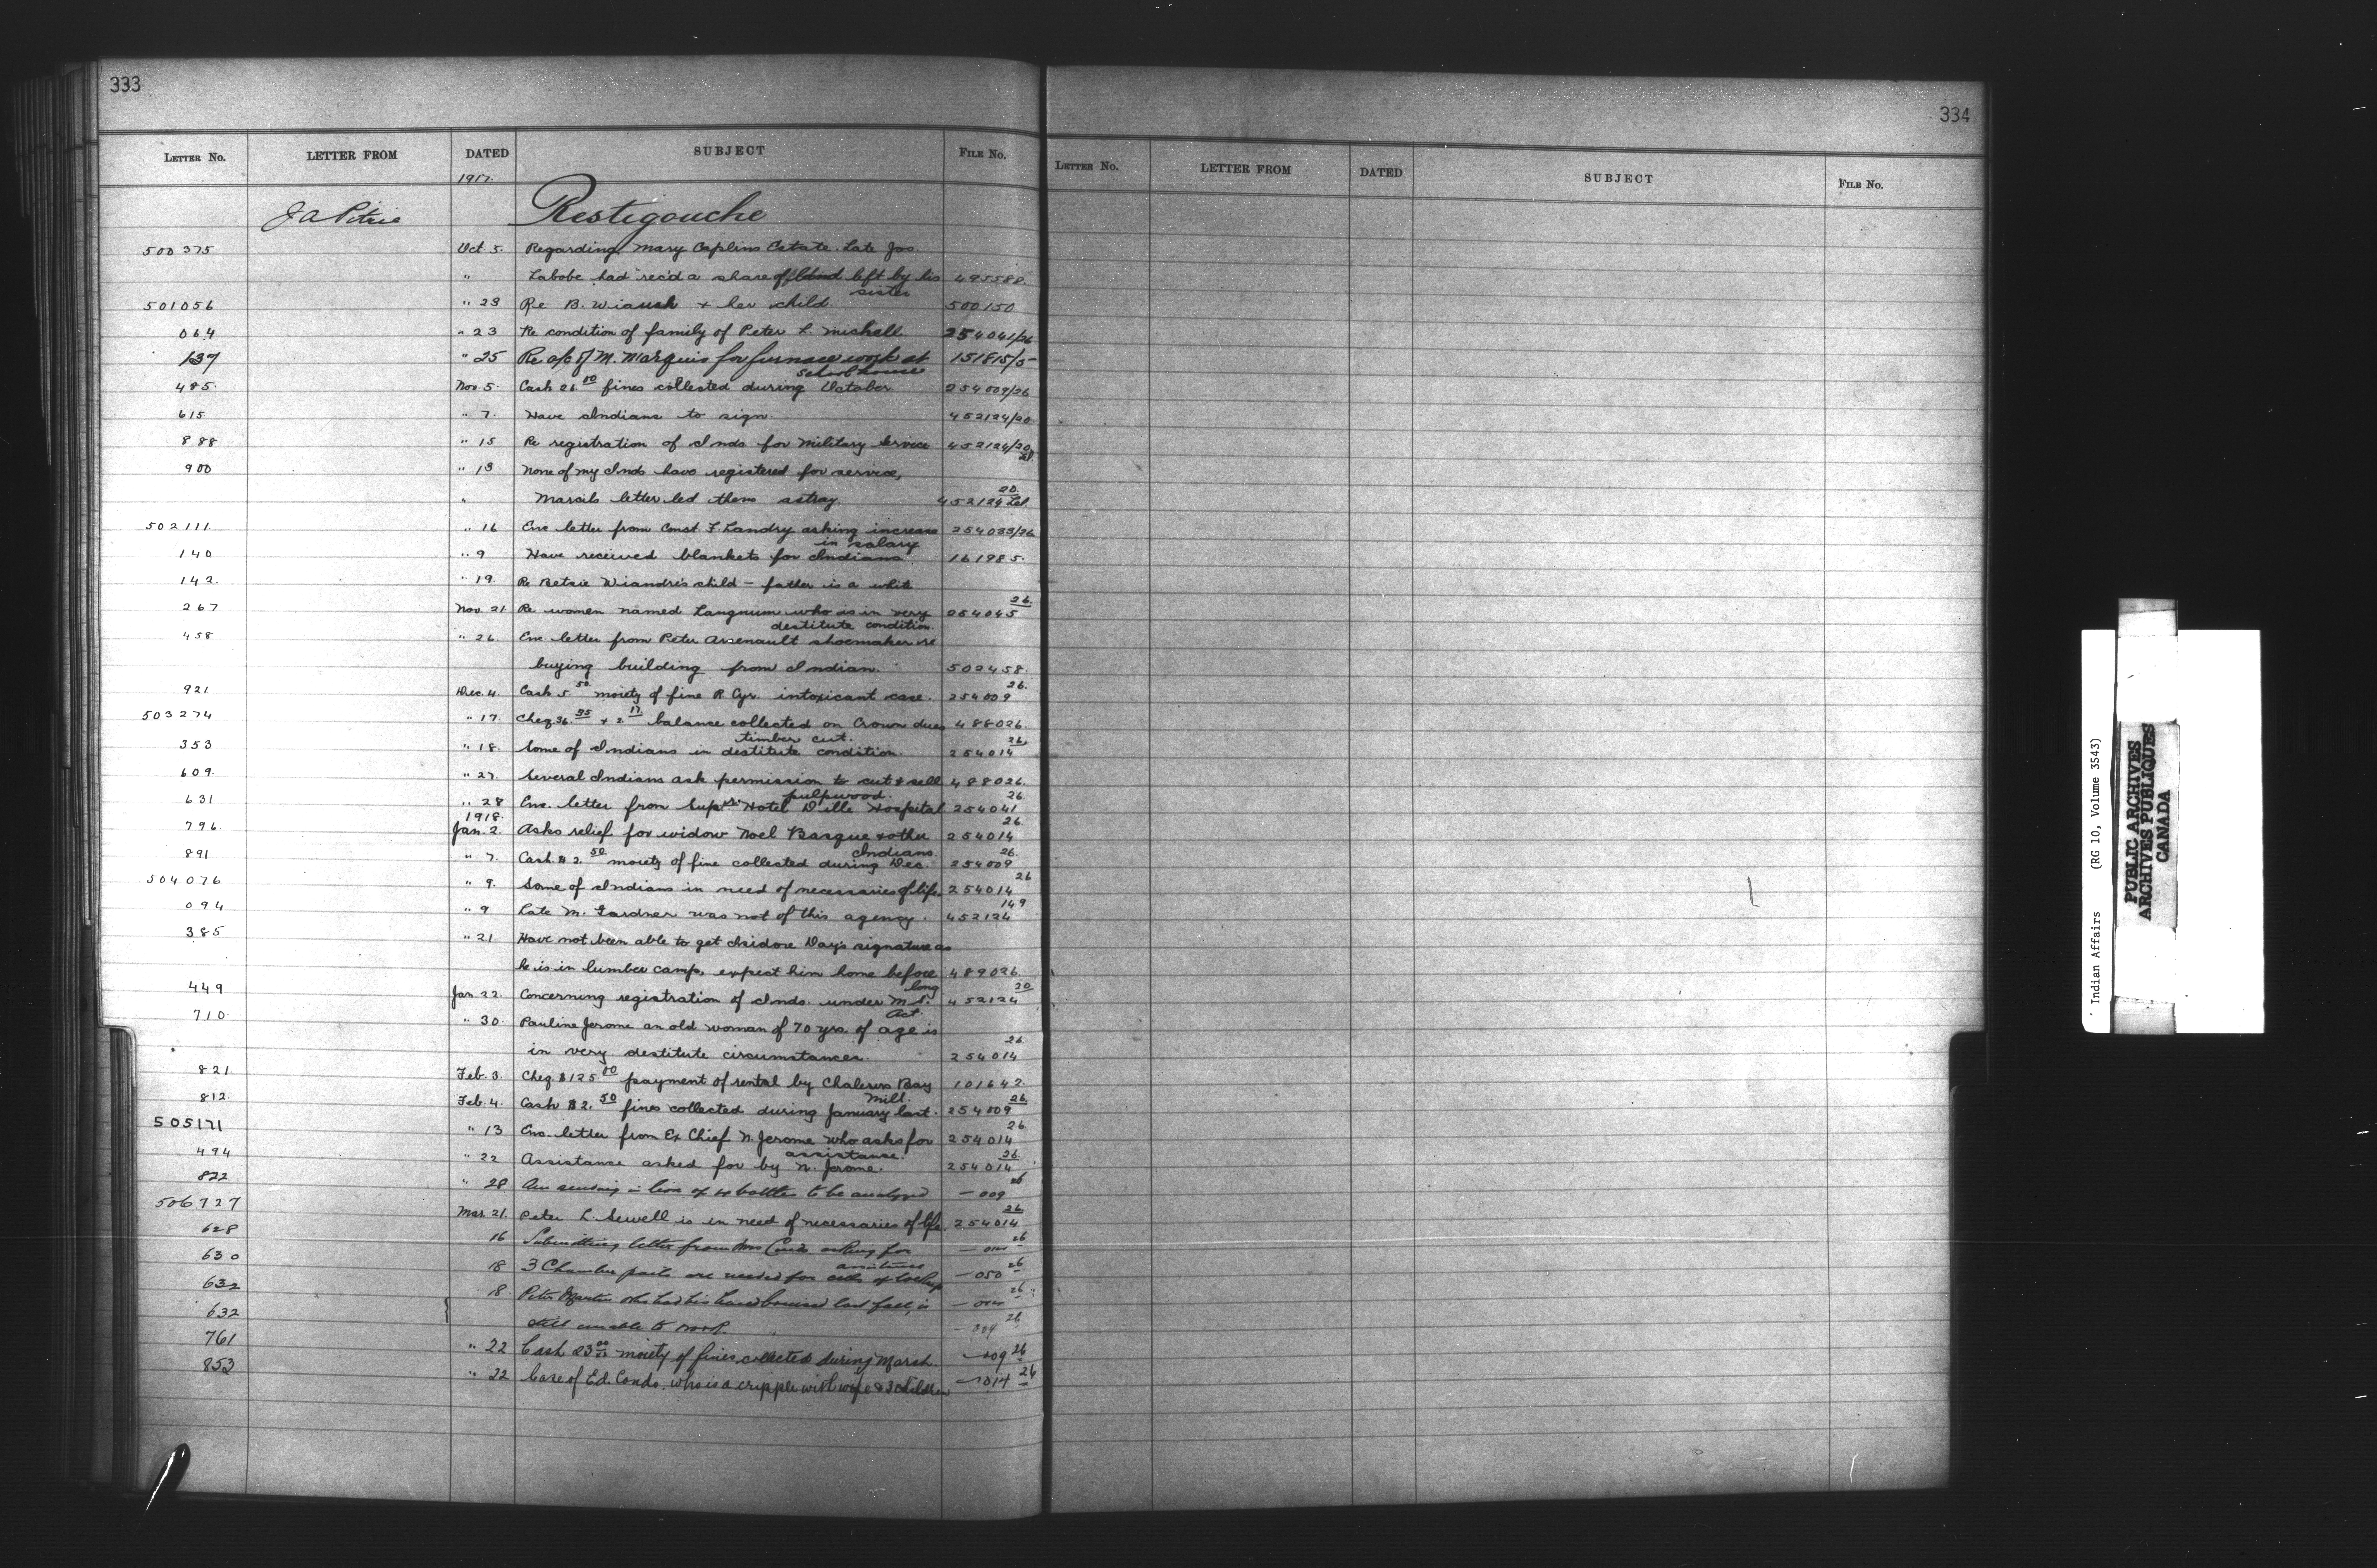 333
LETTER NO. LETTER FROM DATED SUBJECT FILE No.
1917.
J A Pitrie Restigouche
500375 Oct. 5. Regarding Mary Caplins Estate. Late Jos.
" Labobe had rec'd a share of land left by his sister 495588.
501056 " 23 Re B. & her child. 500150
064 " 23 Re condition of family of Peter L. Michell 254041/26
137 " 25 Re a/c of M. Marquis for furnace work at school house 151815/5
485. Nov. 5. Cash 26.00 fines collected during October 254009/26
615 " 7. Have Indians to sign. 452124/20
888 " 15 Re registration of Inds for Military Service 452124/20
900 " 13 None of my Inds have registered for service,
" Marcils letter led them astray. 452124 20
502111 " 16 Enc letter from Const. F. Landry asking increase in salary 254033/26
140 " 9 Have received blankets for Indians 161985.
142. " 19. Re Betsie Wiandre's child - father is a white
267 Nov. 21 Re women named Langnum who is in very destitute condition. 254045 26.
458 " 26. Enc letter from Peter Arsenault shoemaker re
buying building from Indian. 502458.
921 Dec. 4. Cash 5.50 moiety of fine R. Cyr. intoxicant case. 254009 26.
503274 " 17. Cheq. 36.35 + 2.17 balance collected on Crown dues timber cut. 488026.
353 " 18. Some of Indians in destitute condition. 254014 26.
609. " 27. Several Indians ask permission to cut & sell pulpwood. 488026.
631 " 28 Enc. letter from Supr. Hotel Dille Hospital 254041 26.
1918.
796 Jan. 2. Asks relief for widow Noel Basque & other Indians. 254014 26.
891 " 7. Cash. $2.50 moiety of fine collected during Dec. 254009 26.
504076 " 9. Some of Indians in need of necessaries of life. 254014 26
094 " 9 Late M. Gardner was not of this agency. 452124 149
385 " 21 Have not been able to get Isidore Day's signature as
he is in lumber camp, expect him home before long 489026
449 Jan 22. Concerning registration of Inds. under M.S. Act. 452124 20
710 " 30. Pauline Jerome an old woman of 70 yrs. of age is
in very destitute circumstances. 254014 26.
821. Feb. 3. Cheq. $125.00 payment of rental by Chaleurs Bay Mill. 101642.
812. Feb. 4. Cash $2.50 fines collected during January last. 254009 26.
505171 " 13 Enc. letter from Ex Chief N. Jerome who asks for assistance. 254014 26
494 " 22 Assistance asked for by N. Jerome. 254014 26.
822 " 28 Am sending in box of 4 bottles to be analyzed — 009 26
506727 Mar. 21. Peter L. Sewell is in need of necessaries of life. 254014 26.
628 16 Submitting letter from Mrs Condo asking for assistance — 014 26
630 18 3 Chamber pails are needed for cells of lockup — 050 26
632 18. Peter Martin who had his hand bruised last fall, is — 014 26
632 still unable to work. 26
761 " 22 Cash 23.00 moiety of fines collected during March. — 009 26
853 " 22 Case of Ed. Condo. who is a cripple with wife & 3 children — 014 26
334
LETTER No. LETTER FROM DATED SUBJECT FILE No.
Indian Affairs (RG 10, Volume 3543)
PUBLIC ARCHIVES
ARCHIVES PUBLIQUES
CANADA